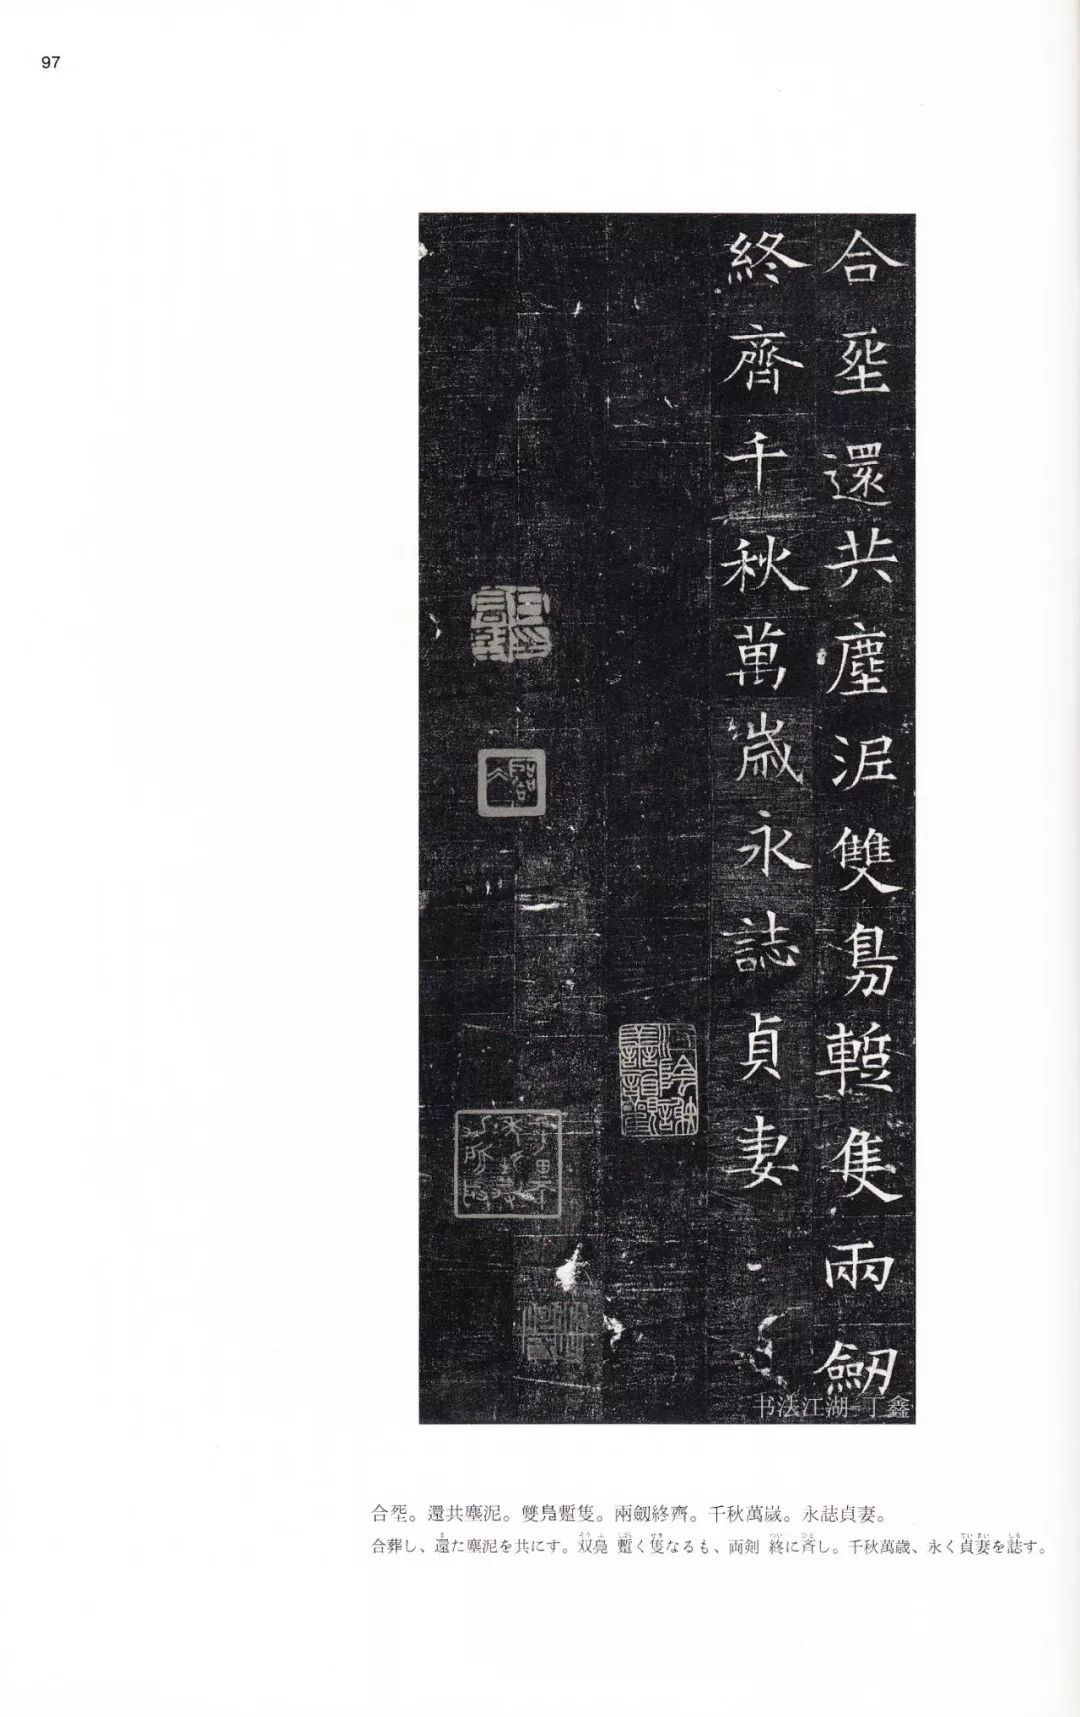 97
合埊還共塵泥雙鳧蹔隻兩劒
終齊千秋萬歲永誌貞妻
书法江湖-丁鑫
合埊。還共塵泥。雙鳧蹔隻。兩劒終齊。千秋萬歲。永誌貞妻。
合葬し、還た塵泥を共にす。双鳧 蹔く隻なるも、両剣 終に斉し。千秋萬歳、永く貞妻を誌す。